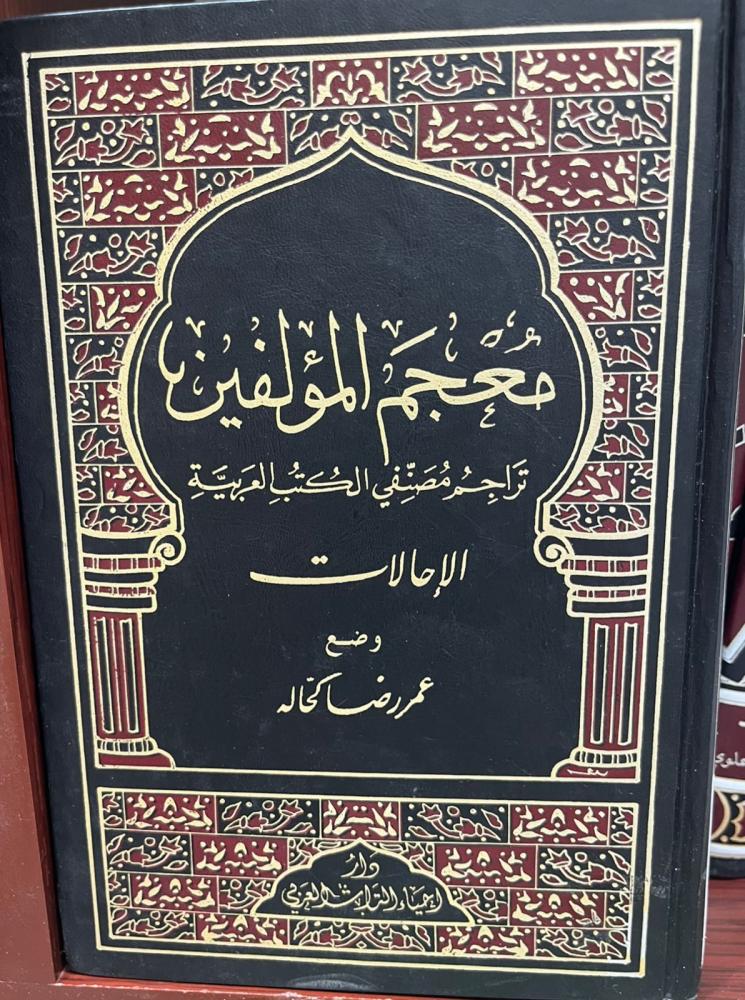 مُعْجَمُ المؤلفين
تَرَاجِمُ مُصَنِّفي الكُتُبِ العَرَبِيَّةِ
الإحالات
وضع
عمر رضا كحاله
دَارُ
إحياء التراث العربي
علوي